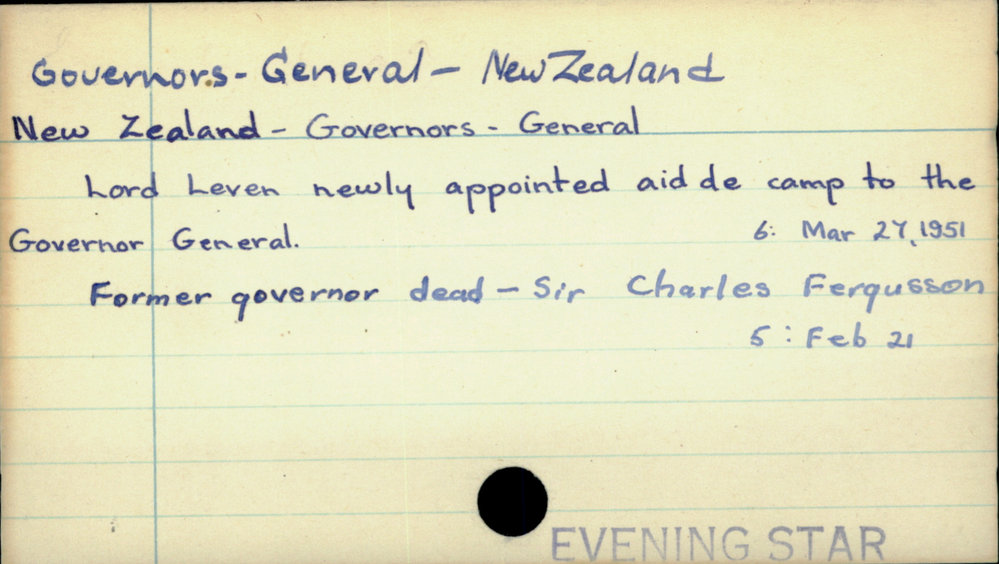 Governors - General - New Zealand
New Zealand - Governors - General
Lord Leven newly appointed aid de camp to the
Governor General. 6: Mar 27, 1951
Former governor dead - Sir Charles Fergusson
5 : Feb 21
EVENING STAR